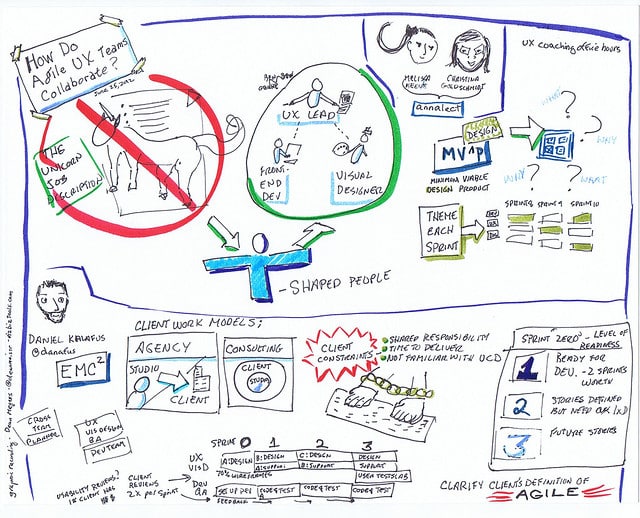 How Do
Agile UX Teams
Collaborate?
June 25, 2012
THE
UNICORN
JOB
DESCRIPTION
UX LEAD
FRONT-
END
DEV
VISUAL
DESIGNER
T-SHAPED PEOPLE
MELISSA
CHRISTINA
GOLDSCHMIDT
annalect
UX coaching office hours
DESIGN
MVP
MINIMUM VIABLE
DESIGN PRODUCT
WHAT?
WHY
WHY?
WHAT
THEME
EACH
SPRINT
DEV
UX
SPRINT 8 SPRINT 9 SPRINT 10
DANIEL KALAFUS
@danafus
EMC²
CLIENT WORK MODELS:
AGENCY
STUDIO
CLIENT
CONSULTING
CLIENT
STUDIO
CLIENT
CONSTRAINTS
SHARED RESPONSIBILITY
TIME TO DELIVER
NOT FAMILIAR WITH UCD
SPRINT "ZERO" - LEVEL OF
READINESS
1 READY FOR
DEV. - 2 SPRINTS
WORTH
2 STORIES DEFINED
BUT NEED UX/IxD
3 FUTURE STORIES
CLARIFY CLIENT'S DEFINITION OF
AGILE
CROSS
TEAM
PLANNER
UX
VIS DESIGN
BA
DEV TEAM
USABILITY REVIEWS?
IF CLIENT HAS
$$
CLIENT
REVIEWS
2X PER SPRINT
SPRINT 0 1 2 3
UX
VISD
A: DESIGN B: DESIGN C: DESIGN DESIGN
A: SUPPORT B: SUPPORT SUPPORT
70% WIREFRAMES
USER TESTS LAB
DEV
QA
SET UP DEV CODE & TEST CODE & TEST CODE & TEST
A
FEEDBACK
graphic recording - Dean Meyers - @deanmeistr - vizbiztools.com